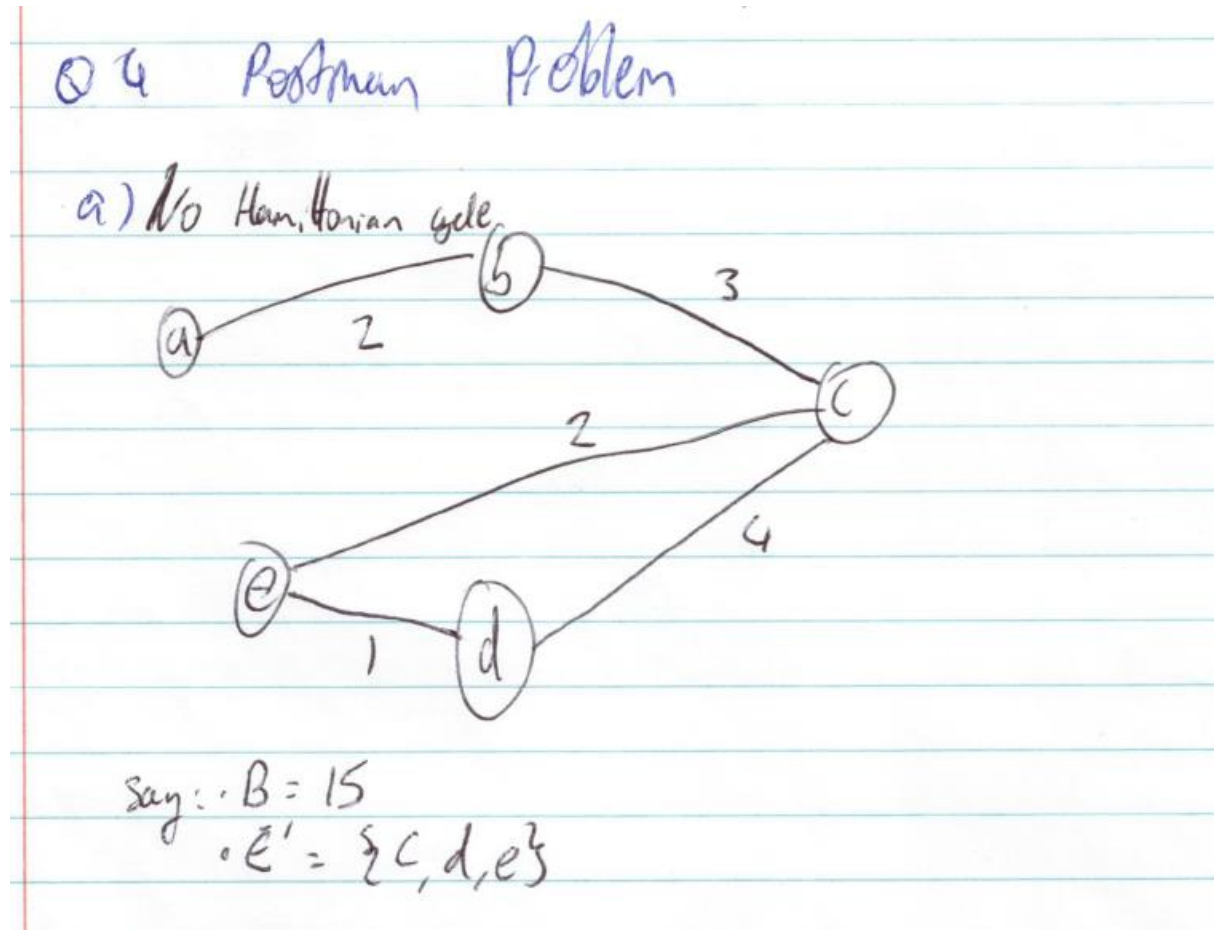 Q4 Postman Problem
a) No Hamiltonian cycle.
b
3
a
2
c
2
4
e
d
1
say: · B = 15
· E' = {c, d, e}